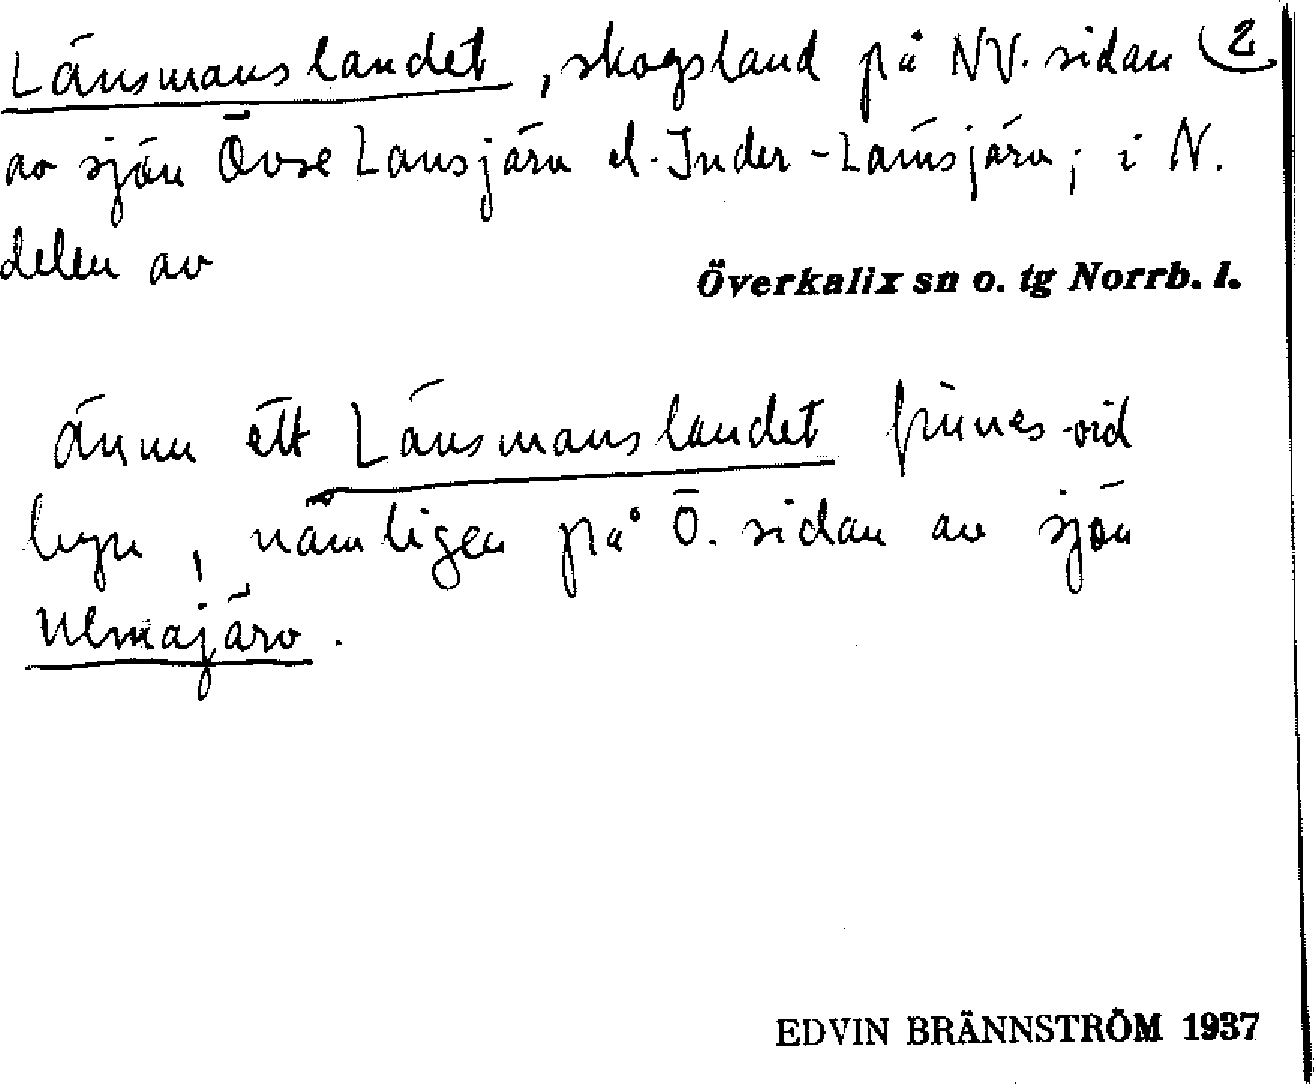 Länsmanslandet, skogsland på NV. sidan 2
av sjön Övre Lansjärv el. Inder-Lansjärv; i N.
delen av
Överkalix sn o. tg Norrb. l.
Ännu ett Länsmanslandet finnes vid
byn, nämligen på Ö. sidan av sjön
Ulmajärv.
EDVIN BRÄNNSTRÖM 1937